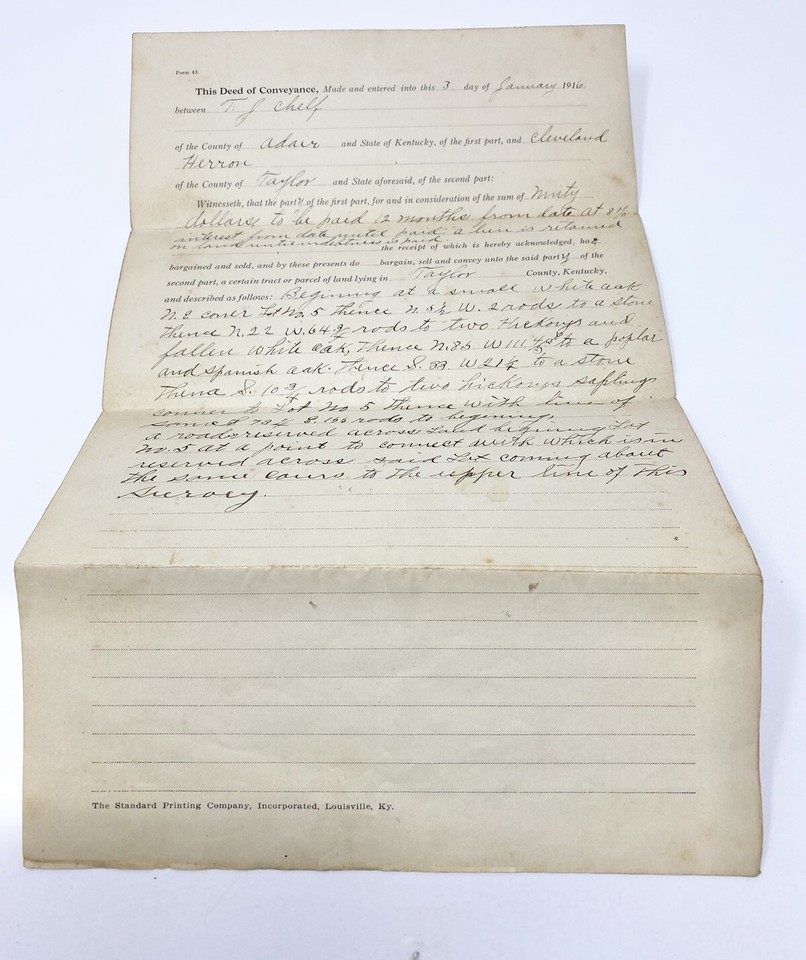 Form 43.
This Deed of Conveyance, Made and entered into this 3 day of January 1916
between T. J Chelf
of the County of Adair and State of Kentucky, of the first part, and Cleveland
Herron
of the County of Taylor and State aforesaid, of the second part:
Witnesseth, that the party of the first part, for and in consideration of the sum of
dollars to be paid 12 months from date at 8%
interest from date until paid. a lien is retained
on land until indebtness is paid
the receipt of which is hereby acknowledged, has
bargained and sold, and by these presents do bargain, sell and convey unto the said party of the
second part, a certain tract or parcel of land lying in Taylor County, Kentucky,
and described as follows: Begining at a small white oak
N.E coner Lot No. 5 thence N. 5½ W. 2 rods to a stone
thence N. 22 W. 64 rods to two Hickorys and
fallen white oak, Thence N. 85 W 111 to a poplar
and spanish oak. Thence S. 33 W 21½ to a stone
Thence S. 10 rods to two hickorys saplings
conner to Lot No 5 thence with line of
same E. 155 rods to begining.
a road reserved across Land begining Lot
No. 5 at a point to connect with which is in
reserved across said Lot coming about
the same cours to the upper line of this
Survey.
The Standard Printing Company, Incorporated, Louisville, Ky.